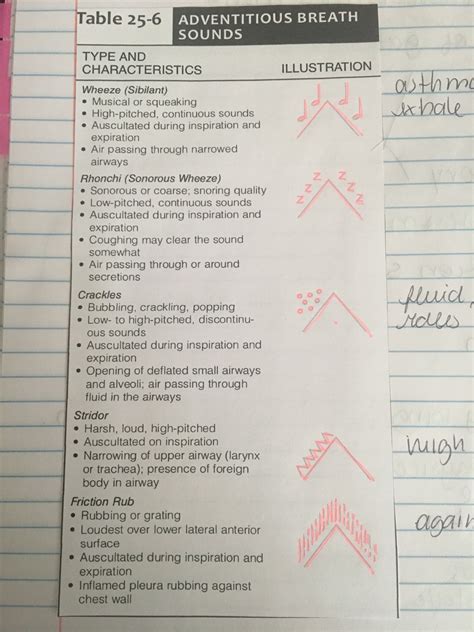 Table 25-6
ADVENTITIOUS BREATH
SOUNDS
TYPE AND
CHARACTERISTICS
ILLUSTRATION
Wheeze (Sibilant)
• Musical or squeaking
• High-pitched, continuous sounds
• Auscultated during inspiration and
expiration
• Air passing through narrowed
airways
Rhonchi (Sonorous Wheeze)
• Sonorous or coarse; snoring quality
• Low-pitched, continuous sounds
• Auscultated during inspiration and
expiration
• Coughing may clear the sound
somewhat
• Air passing through or around
secretions
z z z z z
Crackles
• Bubbling, crackling, popping
• Low- to high-pitched, discontinu-
ous sounds
• Auscultated during inspiration and
expiration
• Opening of deflated small airways
and alveoli; air passing through
fluid in the airways
Stridor
• Harsh, loud, high-pitched
• Auscultated on inspiration
• Narrowing of upper airway (larynx
or trachea); presence of foreign
body in airway
Friction Rub
• Rubbing or grating
• Loudest over lower lateral anterior
surface
• Auscultated during inspiration and
expiration
• Inflamed pleura rubbing against
chest wall
asthma
exhale
fluid,
high
again